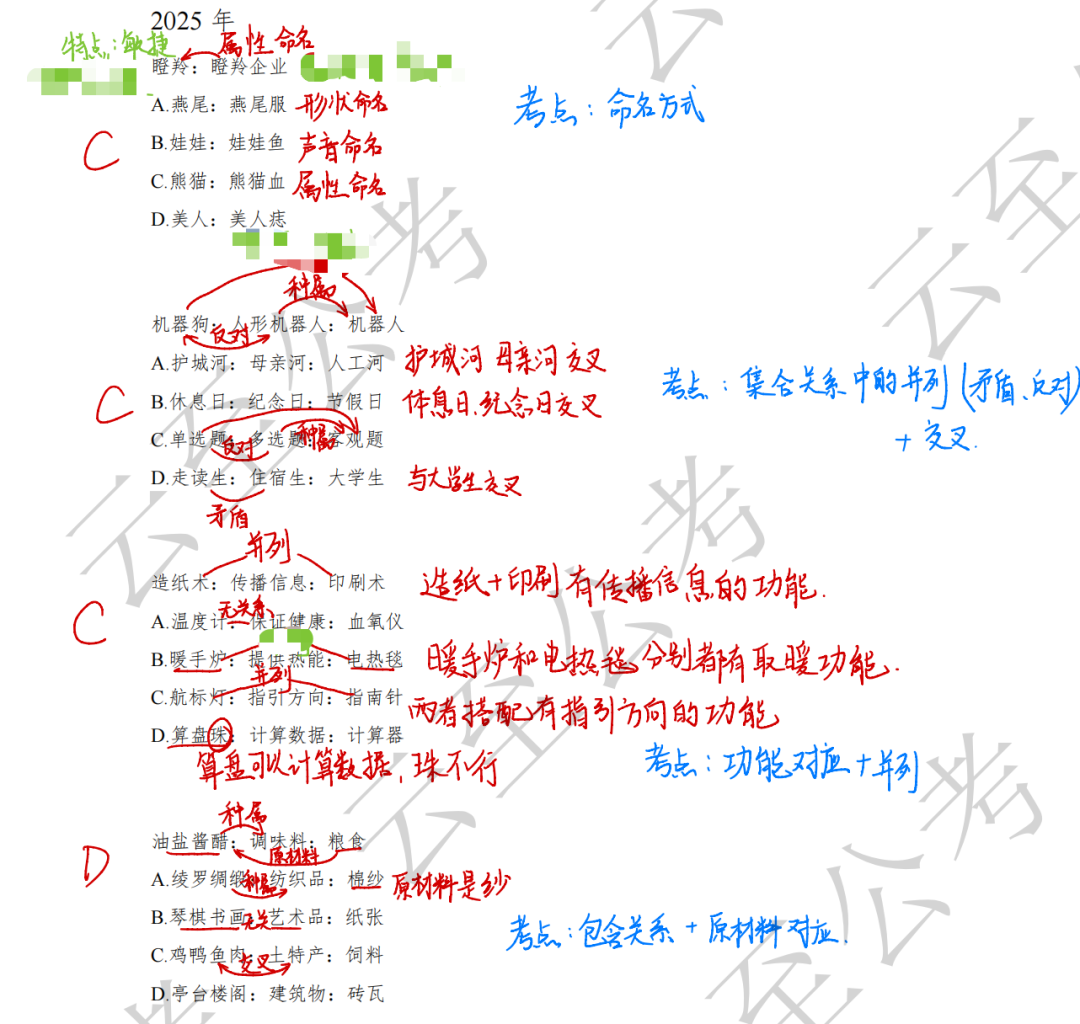 2025 年
特点:敏捷 属性命名
瞪羚：瞪羚企业
A.燕尾：燕尾服 形状命名
考点:命名方式
B.娃娃：娃娃鱼 声音命名
C
C.熊猫：熊猫血 属性命名
D.美人：美人痣
种属
机器狗：人形机器人：机器人
反对
A.护城河：母亲河：人工河 护城河 母亲河 交叉
考点:集合关系中的并列(矛盾、反对)
+ 交叉.
C
B.休息日：纪念日：节假日 体息日、纪念日交叉
C.单选题：多选题：客观题
反对 种属
D.走读生：住宿生：大学生 与大学生交叉
矛盾
并列
造纸术：传播信息：印刷术 造纸+印刷 有传播信息的功能.
无关系
C
A.温度计：保证健康：血氧仪
B.暖手炉：提供热能：电热毯 暖手炉和电热毯分别都有取暖功能.
并列
C.航标灯：指引方向：指南针 两者搭配有指引方向的功能
D.算盘珠：计算数据：计算器
算盘可以计算数据，珠不行
考点:功能对应+并列
种属
油盐酱醋：调味料：粮食
原材料
D
A.绫罗绸缎：纺织品：棉纱 原材料是纱
种属
B.琴棋书画：艺术品：纸张
无关
考点:包含关系+原材料对应.
C.鸡鸭鱼肉：土特产：饲料
交叉
D.亭台楼阁：建筑物：砖瓦
云至公考
云至公考
云至公考